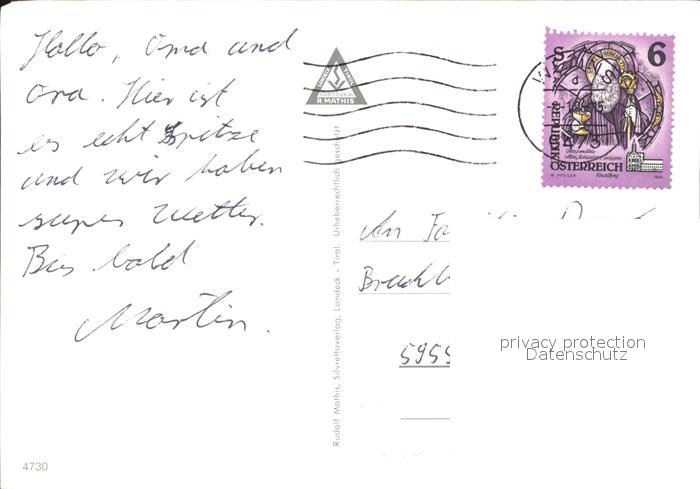 Hallo, Oma und
Opa. Hier ist
es echt Spitze
und wir haben
super Wetter.
Bis bald
Martin.
4730
R. MATHIS
Rudolf Mathis, Silvrettaverlag, Landeck - Tirol. Urheberrechtlich geschützt
6
S
REPUBLIK
ÖSTERREICH
An Fa
5959
privacy protection
Datenschutz